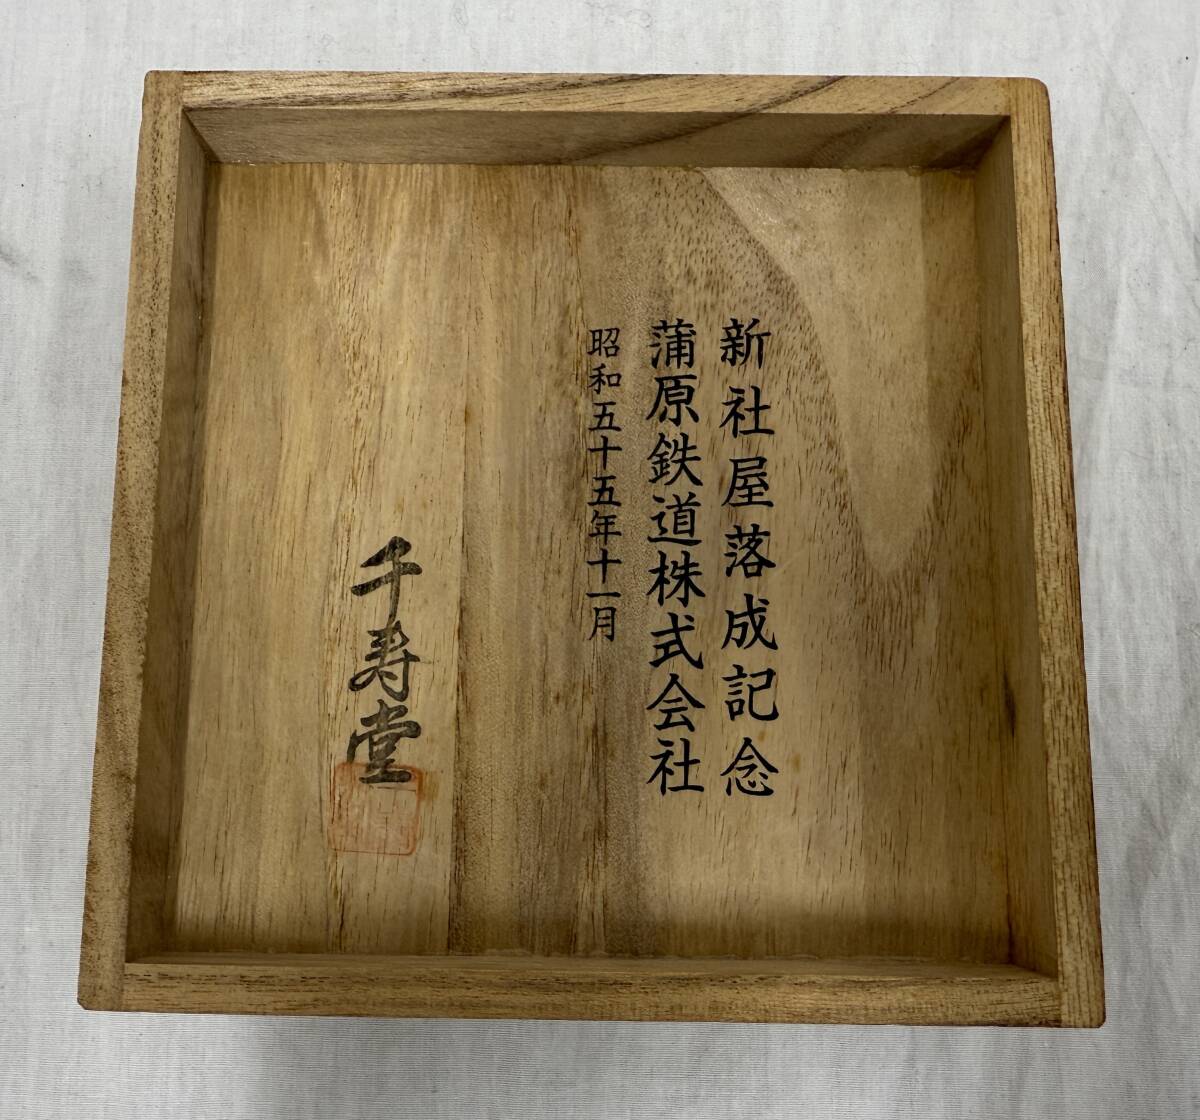 新社屋落成記念
蒲原鉄道株式会社
昭和五十五年十一月
千寿堂